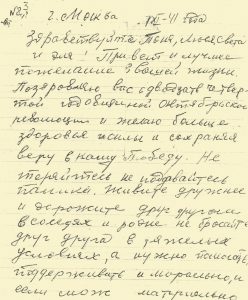 г. Москва XI-41 года
Здравствуйте Таня, Люся Света
и Эля! Привет и лучшие
пожелания в вашей жизни.
Поздравляю вас с двадцать четвер
той годовщиной Октябрьской
революции и желаю больше
здоровья силы и сохраняя
веру в нашу Победу. Не
теряйтесь не поддавайтесь
панике. Живите дружнее
и дорожите друг другом
в соседях и родне не бросайте
друг друга в тяжелых
условиях, а нужно помогать,
поддерживать и морально, а
если мож материально